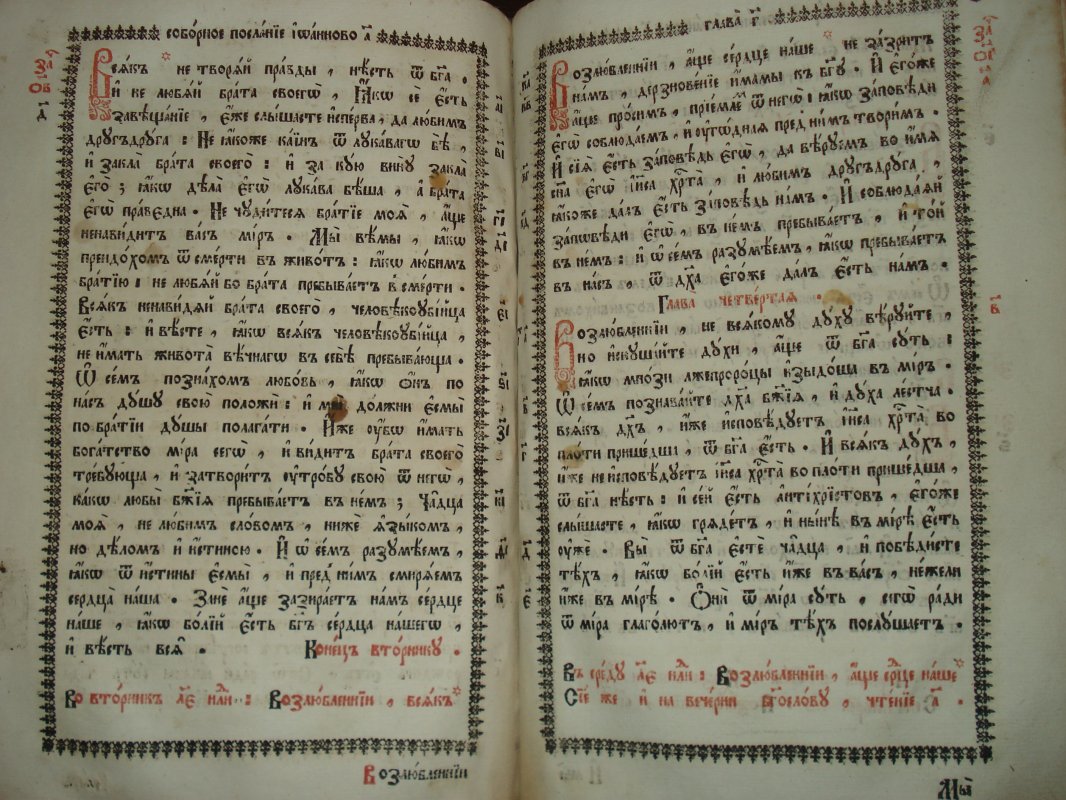 СОБО́РНОЕ ПОСЛА́НІЕ І҆ѠА́ННОВО а҃
Вся́къ не творѧ́й пра́вды , нѣ́сть ѿ бг҃а .
И҆ не любѧ́й бра́та своегѡ̀ , Ꙗ҆́кѡ сѐ є҆́сть
завѣща́нїе , є҆́же слы́шасте и҆спе́рва , да лю́бимъ
дру́гъдру́га : Не ꙗ҆́коже ка́инъ ѿ лука́вагѡ бѣ̀ ,
и҆ закла̀ бра́та своего̀ : и҆ за ку́ю вину̀ закла̀
є҆го̀ ; ꙗ҆́кѡ дѣла̀ є҆гѡ̀ лука́ва бѣ́ша , а҆ бра́та
є҆гѡ̀ пра́ведна . Не чуди́тесѧ бра́тїе моѧ̀ , а҆́ще
ненави́дитъ ва́съ мі́ръ . Мы̀ вѣ́мы , ꙗ҆́кѡ
преидо́хомъ ѿ сме́рти въ живо́тъ : ꙗ҆́кѡ лю́бимъ
бра́тїю : не любѧ́й бо бра́та пребыва́етъ в̾ сме́рти .
Всѧ́къ ненави́дѧй бра́та своего̀ , человѣкоубі́йца
є҆́сть : и҆ вѣ́сте , ꙗ҆́кѡ всѧ́къ человѣкоубі́йца ,
не и҆́мать живота̀ вѣ́чнагѡ въ себѣ̀ пребыва́юща .
Ѡ҆ се́мъ позна́хомъ любо́вь , ꙗ҆́кѡ ѻ҆́нъ по
на́съ ду́шу свою̀ положѝ : и҆ мы̀ до́лжни є҆смы̀
по бра́тїи ду́шы полага́ти . И҆́же ᲂу҆́бѡ и҆́мать
бога́тство мі́ра сегѡ̀ , и҆ ви́дитъ бра́та своего̀
тре́бующа , и҆ затвори́тъ ᲂу҆тро́бу свою̀ ѿ негѡ̀ ,
ка́кѡ любы̀ бж҃їѧ пребыва́етъ въ не́мъ ; Ча̑дца
моѧ̀ , не лю́бимъ сло́вомъ , нижѐ ѧ҆зы́комъ ,
но дѣ́ломъ и҆ и҆́стиною . И҆ ѡ҆ се́мъ разумѣ́емъ ,
ꙗ҆́кѡ ѿ и҆́стины є҆смы̀ , и҆ пред̾ ни́мъ смирѧ́емъ
сердца̀ на́ша . Занѐ а҆́ще зазира́етъ на́мъ се́рдце
на́ше , ꙗ҆́кѡ бо́лїй є҆́сть бг҃ъ се́рдца на́шегѡ ,
и҆ вѣ́сть всѧ̑ . Коне́цъ вто́рнику .
Во вто́рникъ л҃є нли : Возлю́бленнїи , всѧ́къ
Возлю́бленнїи
ГЛАВА̀ г҃
Возлю́бленнїи , а҆́ще се́рдце на́ше не за́зритъ
на́мъ , дерзнове́нїе и҆́мамы къ бг҃у . И҆ є҆го́же
а҆́ще про́симъ , прїе́млемъ ѿ негѡ̀ : ꙗ҆́кѡ за́повѣди
є҆гѡ̀ соблюда́емъ , и҆ ᲂу҆гѡ́днаѧ пред̾ ни́мъ твори́мъ .
И҆ сїѧ̀ є҆́сть за́повѣдь є҆гѡ̀ , да вѣ́руемъ во и҆́мѧ
сн҃а є҆гѡ̀ і҆и҃са хрⷭ҇та̀ , и҆ лю́бимъ дру́гъдру́га ,
ꙗ҆́коже да́лъ є҆́сть за́повѣдь на́мъ . И҆ соблюда́ѧй
за́пѡвѣди є҆гѡ̀ , въ не́мъ пребыва́етъ , и҆ то́й
въ не́мъ : и҆ ѡ҆ се́мъ разумѣ́емъ , ꙗ҆́кѡ пребыва́етъ
въ на́съ , ѿ дх҃а є҆го́же да́лъ є҆́сть на́мъ .
Глава̀ четве́ртаѧ .
Возлю́бленнїи , не всѧ́кому ду́ху вѣ́руйте ,
но и҆скуша́йте ду́хи , а҆́ще ѿ бг҃а су́ть :
ꙗ҆́кѡ мно́зи лжепроро́цы и҆зыдо́ша въ мі́ръ .
Ѡ҆ се́мъ познава́йте дх҃а бж҃їѧ , и҆ ду́ха ле́стча .
всѧ́къ дх҃ъ , и҆́же и҆сповѣ́дуетъ і҆и҃са хрⷭ҇та̀ во
пло́ти прише́дши , ѿ бг҃а є҆́сть . И҆ всѧ́къ ду́хъ ,
и҆́же не и҆сповѣ́дуетъ і҆и҃са хрⷭ҇та̀ во пло́ти прише́дша ,
ѿ бг҃а нѣ́сть : и҆ се́й є҆́сть а҆нті́хрїстовъ , є҆го́же
слы́шасте , ꙗ҆́кѡ грѧде́тъ , и҆ ны́нѣ въ мі́рѣ є҆́сть
ᲂу҆жѐ . Вы̀ ѿ бг҃а є҆стѐ ча̑дца , и҆ побѣди́сте
тѣ́хъ , ꙗ҆́кѡ бо́лїй є҆́сть и҆́же въ ва́съ , не́жели
и҆́же въ мі́рѣ . Ѻ҆нѝ ѿ мі́ра су́ть , сегѡ̀ ра́ди
ѿ мі́ра глаго́лютъ , и҆ мі́ръ тѣ́хъ послу́шаетъ .
Въ сре́ду л҃є нли : Возлю́бленнїи , а҆́ще се́рдце на́ше
Сїѐ же и҆ на вече́рни бг҃осло́ву , чте́нїе а҃ .
Мы̀